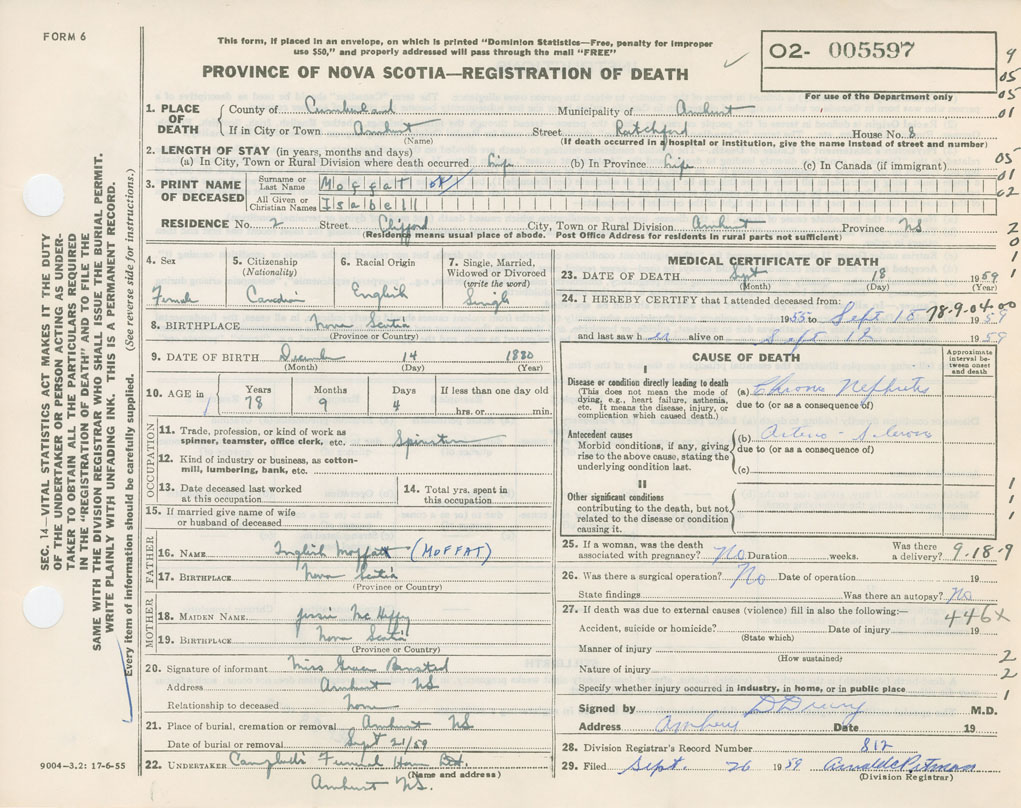 FORM 6
This form, if placed in an envelope, on which is printed "Dominion Statistics—Free, penalty for improper
use $50," and properly addressed will pass through the mail "FREE"
PROVINCE OF NOVA SCOTIA—REGISTRATION OF DEATH
02- 005597
For use of the Department only
9
05
05
01
05
01
02
2
0
1
SEC. 14—VITAL STATISTICS ACT MAKES IT THE DUTY
OF THE UNDERTAKER OR PERSON ACTING AS UNDER-
TAKER TO OBTAIN ALL THE PARTICULARS REQUIRED
IN THE "REGISTRATION OF DEATH" AND TO FILE THE
SAME WITH THE DIVISION REGISTRAR WHO SHALL ISSUE THE BURIAL PERMIT.
WRITE PLAINLY WITH UNFADING INK. THIS IS A PERMANENT RECORD.
Every item of information should be carefully supplied. (See reverse side for instructions.)
1. PLACE OF DEATH
County of Cumberland Municipality of Amherst
If in City or Town Amherst Street Ratchford House No. 8
(Name) (If death occurred in a hospital or institution, give the name instead of street and number)
2. LENGTH OF STAY (in years, months and days)
(a) In City, Town or Rural Division where death occurred Life (b) In Province Life (c) In Canada (if immigrant)
3. PRINT NAME OF DECEASED
Surname or Last Name Moffat
All Given or Christian Names Isabell
RESIDENCE No. 2 Street Clifford City, Town or Rural Division Amherst Province NS
(Residence means usual place of abode. Post Office Address for residents in rural parts not sufficient)
4. Sex
Female
5. Citizenship (Nationality)
Canadian
6. Racial Origin
English
7. Single, Married, Widowed or Divorced (write the word)
Single
8. BIRTHPLACE Nova Scotia
(Province or Country)
9. DATE OF BIRTH December 14 1880
(Month) (Day) (Year)
10. AGE in
Years 78
Months 9
Days 4
If less than one day old
hrs. or min.
OCCUPATION
11. Trade, profession, or kind of work as spinner, teamster, office clerk, etc. Spinster
12. Kind of industry or business, as cotton-mill, lumbering, bank, etc.
13. Date deceased last worked at this occupation
14. Total yrs. spent in this occupation
15. If married give name of wife or husband of deceased
FATHER
16. NAME English Moffatt (MOFFAT)
17. BIRTHPLACE Nova Scotia
(Province or Country)
MOTHER
18. MAIDEN NAME Jessie Mc Heffy
19. BIRTHPLACE Nova Scotia
(Province or Country)
20. Signature of informant Miss Grace
Address Amherst NS
Relationship to deceased
21. Place of burial, cremation or removal Amherst NS
Date of burial or removal Sept 21/59
22. UNDERTAKER Campbell's Funeral Home
(Name and address)
Amherst NS.
9004—3.2: 17-6-55
MEDICAL CERTIFICATE OF DEATH
23. DATE OF DEATH Sept 18 1959
(Month) (Day) (Year)
24. I HEREBY CERTIFY that I attended deceased from:
1955 to Sept 18 1959
78-9-04-00
and last saw her alive on Sept 1959
CAUSE OF DEATH
Approximate interval between onset and death
I
Disease or condition directly leading to death
(This does not mean the mode of dying, e.g., heart failure, asthenia, etc. It means the disease, injury, or complication which caused death.)
(a) Chronic Nephritis
due to (or as a consequence of)
Antecedent causes
Morbid conditions, if any, giving rise to the above cause, stating the underlying condition last.
(b) Arterio Sclerosis
due to (or as a consequence of)
(c)
II
Other significant conditions
contributing to the death, but not related to the disease or condition causing it.
1
1
1
25. If a woman, was the death associated with pregnancy? No Duration weeks. Was there a delivery?
9-18-9
26. Was there a surgical operation? No Date of operation 19
State findings Was there an autopsy? No
27. If death was due to external causes (violence) fill in also the following:—
446X
Accident, suicide or homicide? Date of injury 19
(State which)
Manner of injury
(How sustained)
2
Nature of injury
2
Specify whether injury occurred in industry, in home, or in public place
1
Signed by M.D.
Address Amherst Date 19
28. Division Registrar's Record Number 812
29. Filed Sept. 26 1959
(Division Registrar)